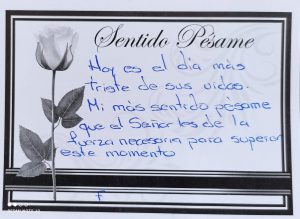 Sentido Pésame
Hoy es el día más
triste de sus vidas.
Mi más sentido pésame
que el Señor les de la
fuerza necesaria para superar
este momento
F